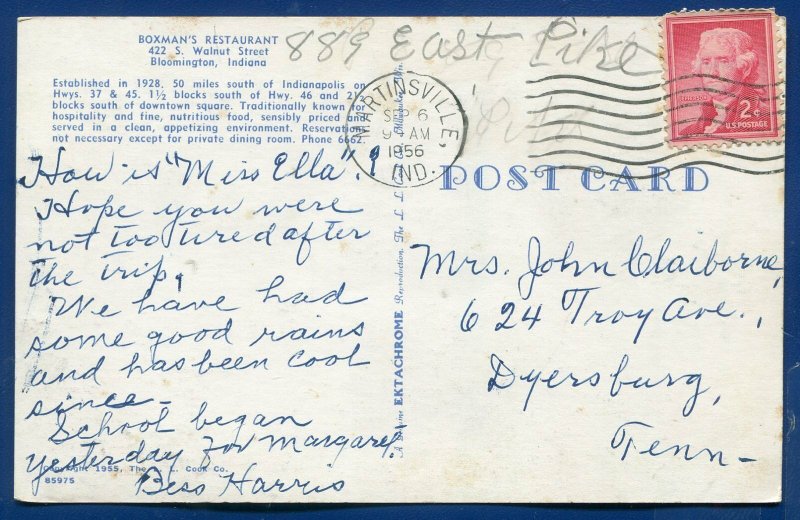 BOXMAN'S RESTAURANT
422 S. Walnut Street
Bloomington, Indiana
Established in 1928, 50 miles south of Indianapolis on
Hwys. 37 & 45. 1½ blocks south of Hwy. 46 and 2½
blocks south of downtown square. Traditionally known for
hospitality and fine, nutritious food, sensibly priced and
served in a clean, appetizing environment. Reservations
not necessary except for private dining room. Phone 6662.
How is "Miss Ella"?
Hope you were
not too tired after
the trip.
We have had
some good rains
and has been cool
since.
School began
yesterday for Margaret.
Bess Harris
Copyright 1955, The L. L. Cook Co.
85975
EKTACHROME Reproduction, The L. L. Cook Co., Milwaukee
889 East Pike
MARTINSVILLE,
SEP 6
9 AM
1956
IND.
2¢
U.S. POSTAGE
POST CARD
Mrs. John Claiborne,
624 Troy Ave.,
Dyersburg,
Tenn-